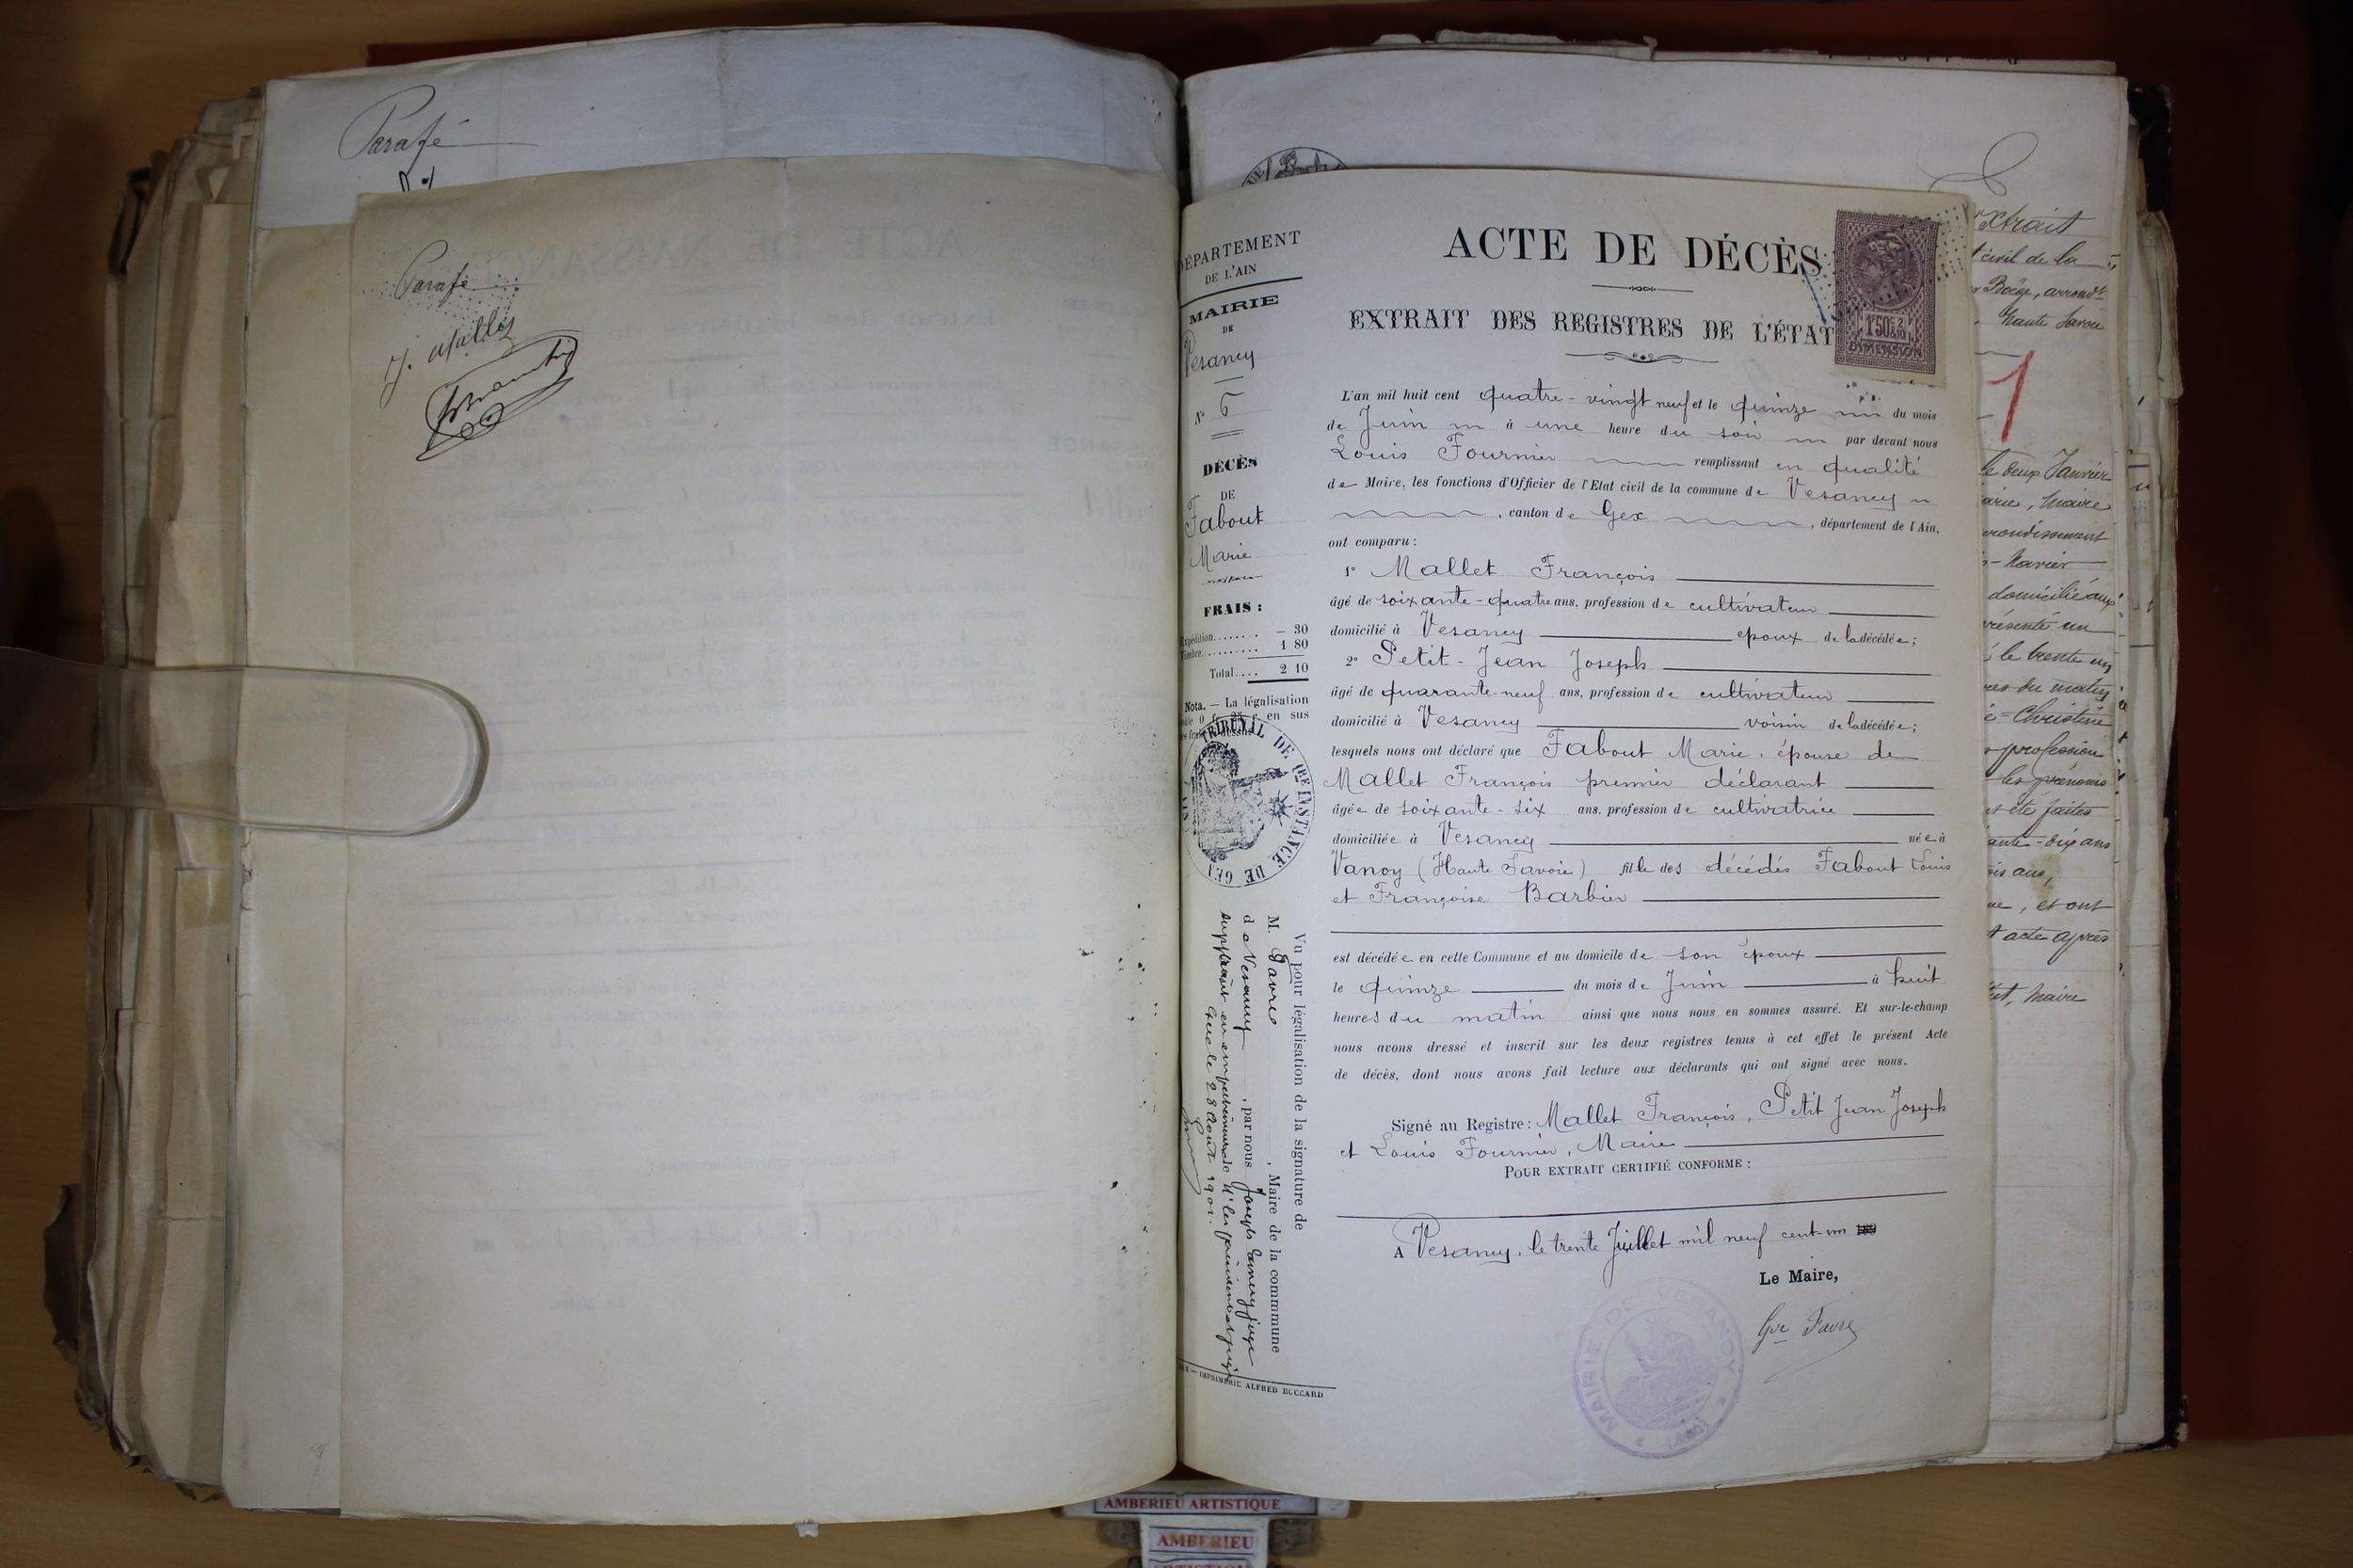 Parafé
Parafé
J. Mallet
DÉPARTEMENT
DE L'AIN
MAIRIE
DE
Vesancy
N° 6
DÉCÈS
DE
Fabout
Marie
FRAIS :
Expédition........ — 30
Timbre.......... 1 80
Total.... 2 10
Nota. — La légalisation
en sus
TRIBUNAL DE 1RE INSTANCE DE GEX
Vu pour légalisation de la signature de
M. Favre, Maire de la commune
de Vesancy, par nous Joseph juge
suppléant en empêchement de
Gex le 28 Août 1901.
IMPRIMERIE ALFRED BUCCARD
ACTE DE DÉCÈS
EXTRAIT DES REGISTRES DE L'ÉTAT
1F50c 2/10
DIMENSION
L'an mil huit cent quatre-vingt neuf et le quinze du mois
de Juin à une heure du soir par devant nous
Louis Fournier remplissant en qualité
de Maire, les fonctions d'Officier de l'Etat civil de la commune de Vesancy
, canton de Gex , département de l'Ain,
ont comparu :
1° Mallet François
âgé de soixante-quatre ans, profession de cultivateur
domicilié à Vesancy époux de la décédée ;
2° Petit-Jean Joseph
âgé de quarante-neuf ans, profession de cultivateur
domicilié à Vesancy voisin de la décédée ;
lesquels nous ont déclaré que Fabout Marie, épouse de
Mallet François premier déclarant
âgée de soixante-six ans, profession de cultivatrice
domiciliée à Vesancy née à
Vanoy (Haute Savoie) fille des décédés Fabout Louis
et Françoise Barbier
est décédée en cette Commune et au domicile de son époux
le quinze du mois de Juin à huit
heures du matin ainsi que nous nous en sommes assuré. Et sur-le-champ
nous avons dressé et inscrit sur les deux registres tenus à cet effet le présent Acte
de décès, dont nous avons fait lecture aux déclarants qui ont signé avec nous.
Signé au Registre : Mallet François, Petit Jean Joseph
et Louis Fournier, Maire
POUR EXTRAIT CERTIFIÉ CONFORME :
A Vesancy, le trente Juillet mil neuf cent un 189
Le Maire,
Gve Favre
MAIRIE DE VESANCY (AIN)
Extrait
civil de la
Boëge, arrondt
Haute Savoie
1
le deux Janvier
Marie, Maire
arrondissement
Xavier
domicilié aux
présenté un
le trente un
res du matin
Christine
profession
les prénoms
et été faites
ante-dix ans
ois ans,
, et ont
t acte après
, Maire
AMBERIEU ARTISTIQUE
AMBERIEU
ARTISTIQUE